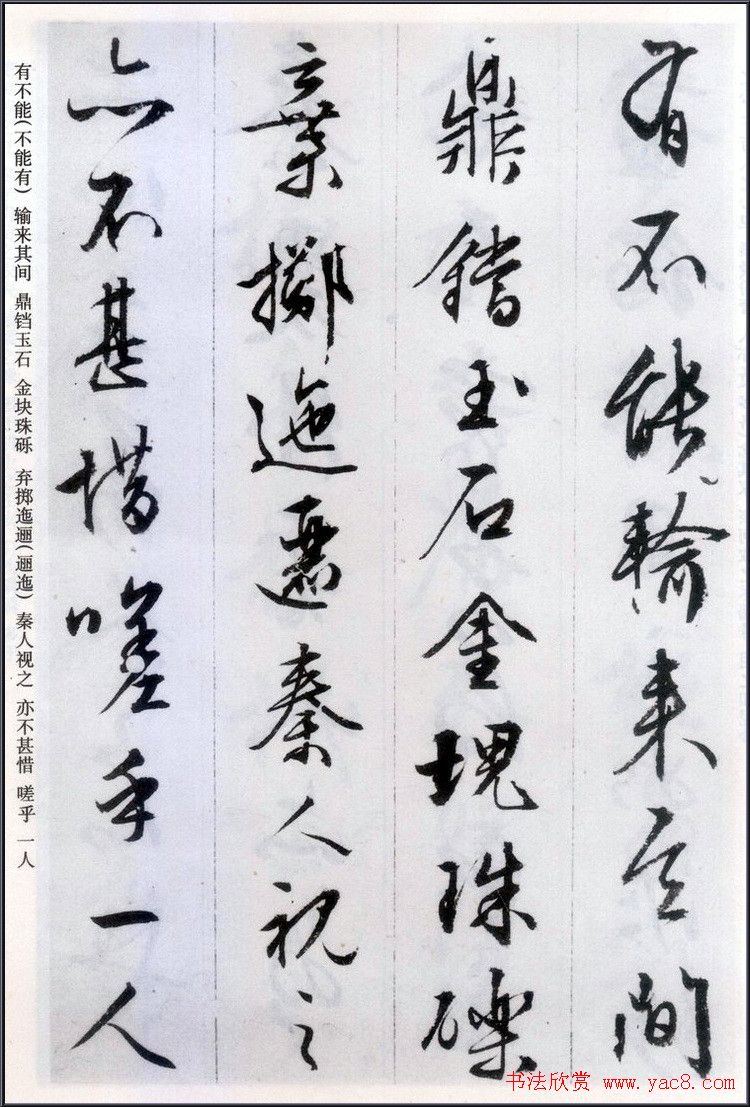 有不能輸来其间
鼎鐺玉石金塊珠礫
棄擲迤逦秦人視之
亦不甚惜嗟乎一人
有不能(不能有) 输来其间 鼎铛玉石 金块珠砾 弃掷迤逦(逦迤) 秦人视之 亦不甚惜 嗟乎 一人
书法欣赏 www.yac8.com